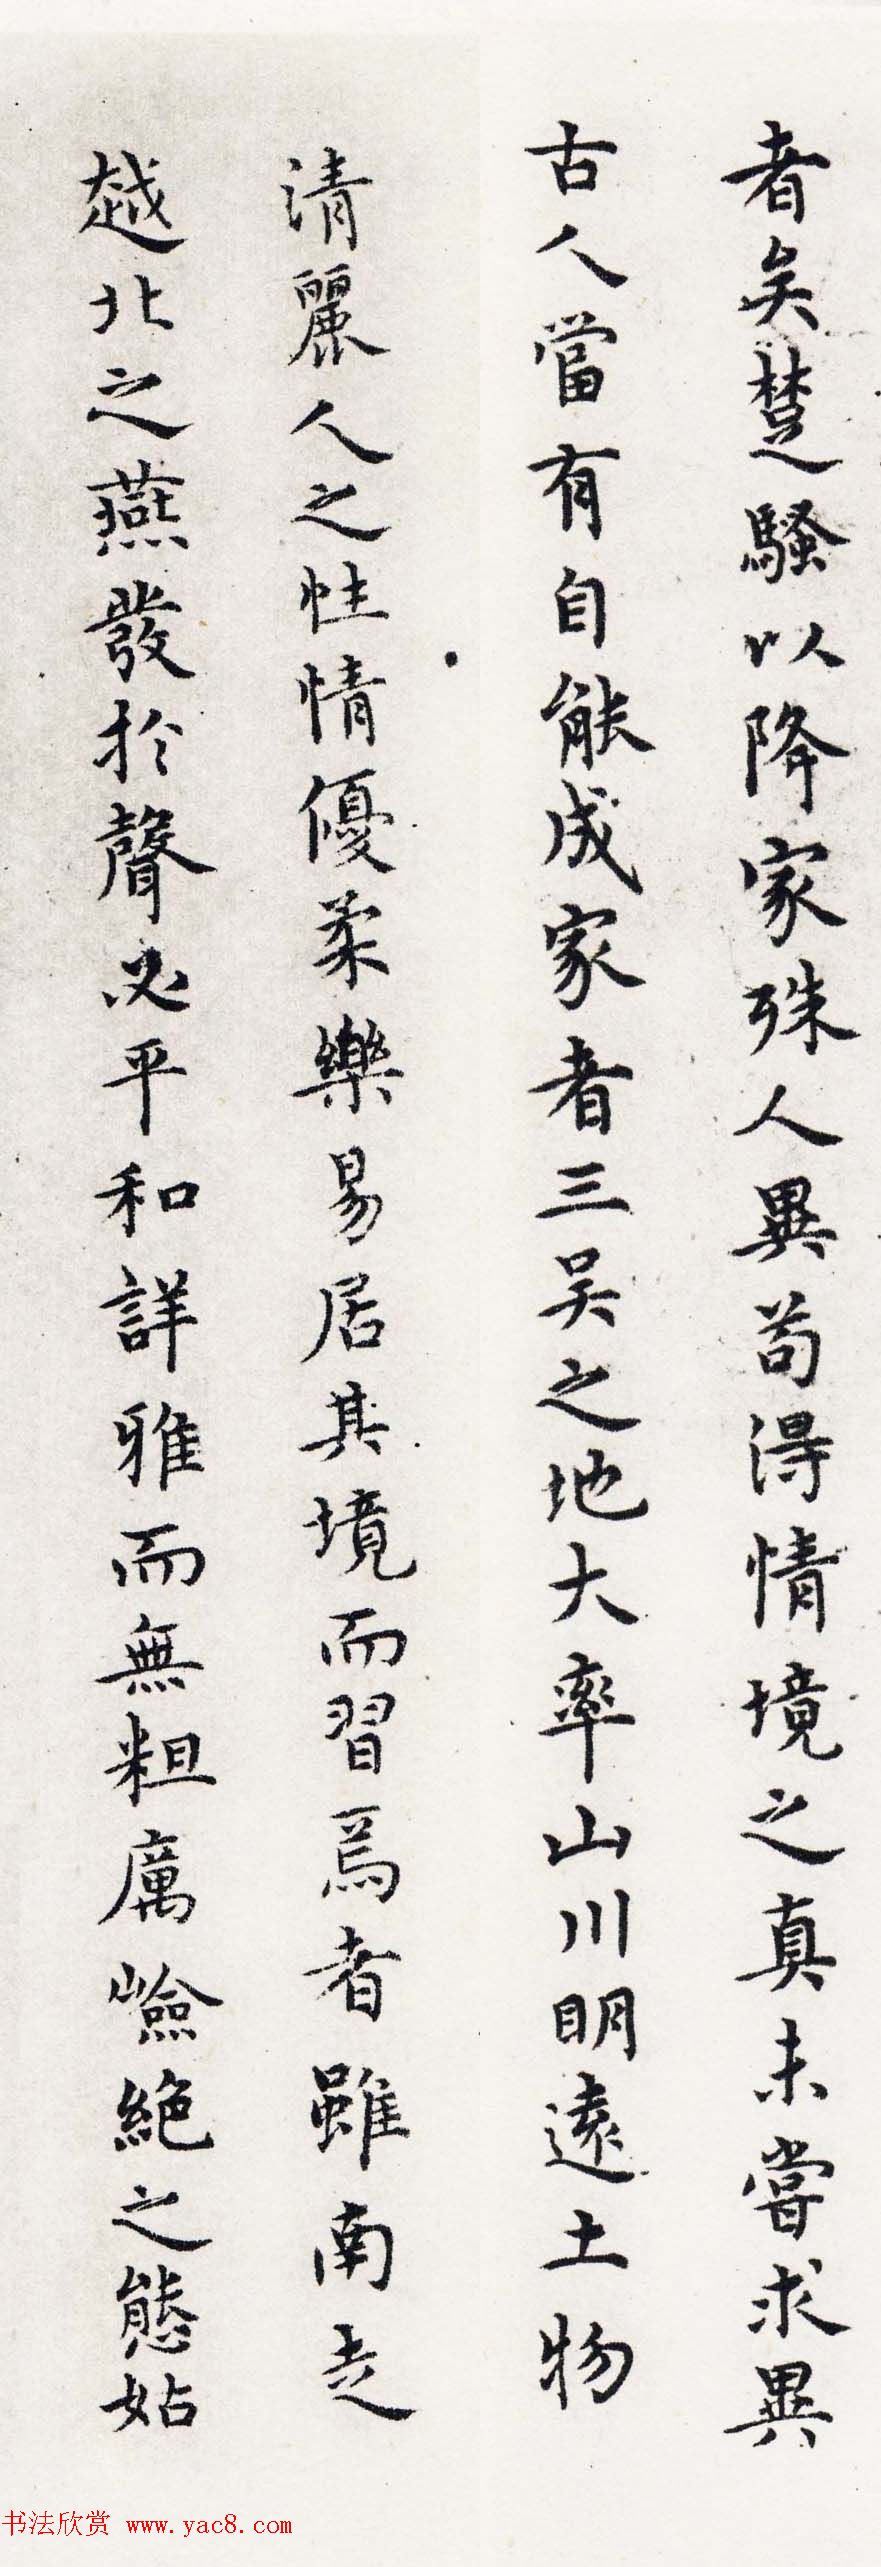 者矣楚騷以降家殊人異苟得情境之真未嘗求異
古人當有自能成家者三吳之地大率山川明遠土物
清麗人之性情優柔樂易居其境而習焉者雖南走
越北之燕發於聲必平和詳雅而無粗厲嶮絕之態姑
书法欣赏 www.yac8.com